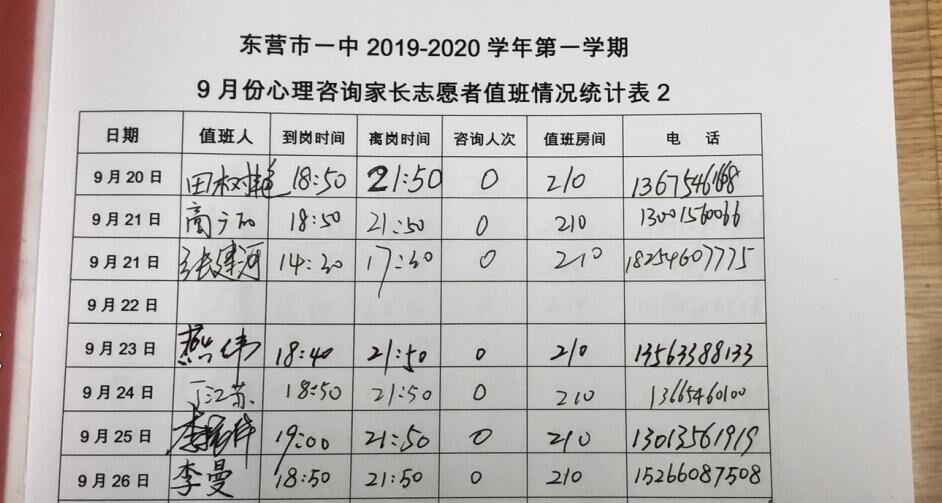 东营市一中 2019-2020 学年第一学期
9 月份心理咨询家长志愿者值班情况统计表 2
日期 值班人 到岗时间 离岗时间 咨询人次 值班房间 电 话
9 月 20 日 田树艳 18:50 21:50 0 210
9 月 21 日 18:50 21:50 0 210 13001560066
9 月 21 日 张建河 14:30 17:30 0 210 18254607775
9 月 22 日
9 月 23 日 燕伟 18:40 21:50 0 210 13563388133
9 月 24 日 丁江苏 18:50 21:50 0 210 13665460100
9 月 25 日 19:00 21:50 0 210 13013561919
9 月 26 日 李曼 18:50 21:50 0 210 15266087508